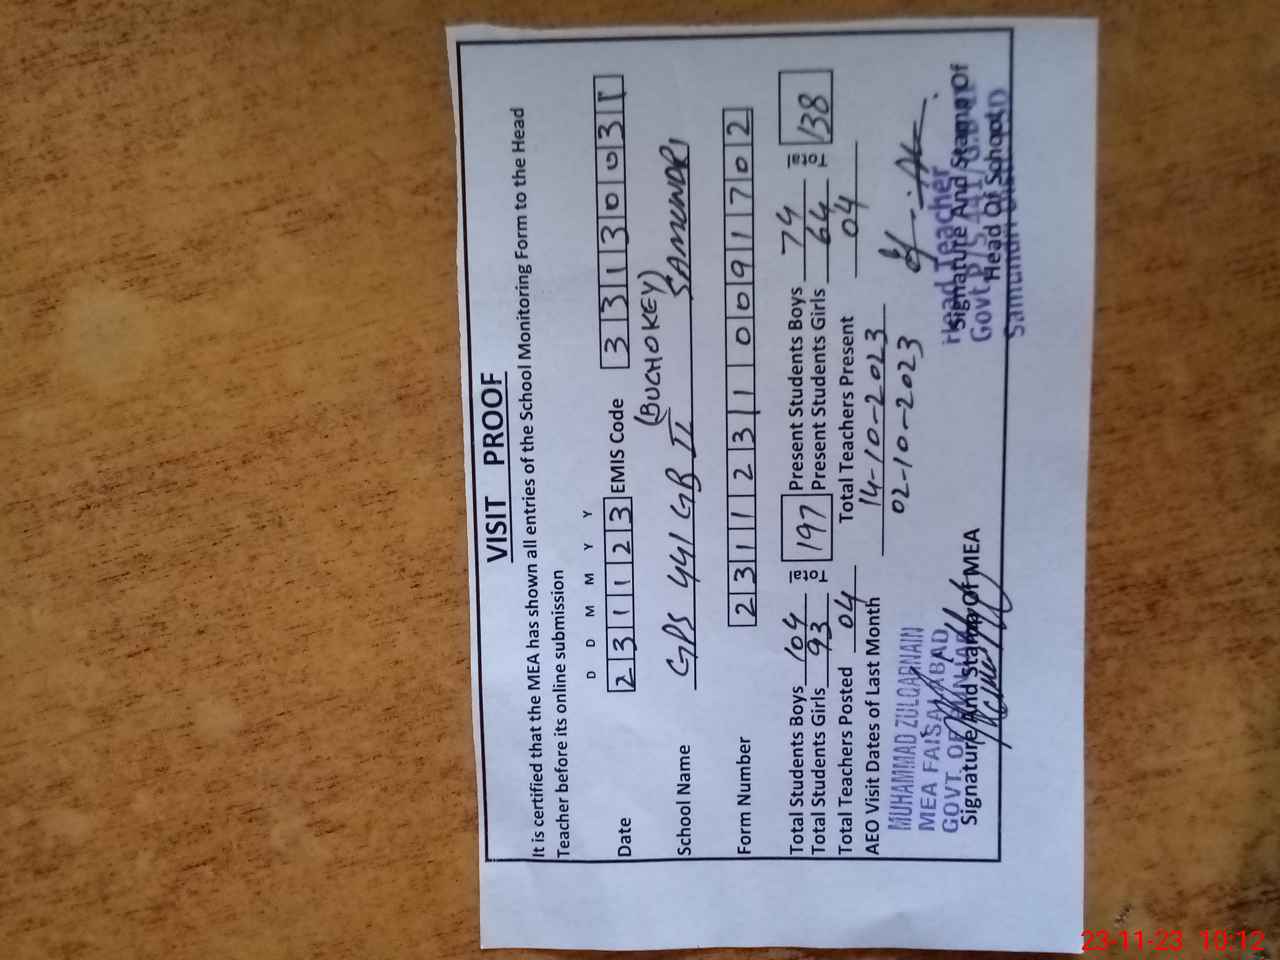 VISIT PROOF
It is certified that the MEA has shown all entries of the School Monitoring Form to the Head
Teacher before its online submission
D D M M Y Y
Date 231123 EMIS Code 33130031
(BUCHOKEY)
School Name GPS 441 GB II SAMUNDRI
Form Number 231123110091702
Total Students Boys 104 Total 197 Present Students Boys 74 Total 138
Total Students Girls 93 Present Students Girls 64
Total Teachers Posted 04 Total Teachers Present 04
AEO Visit Dates of Last Month 14-10-2023
02-10-2023
MUHAMMAD ZULQARNAIN
MEA FAISALABAD
GOVT. OF PUNJAB
Signature And Stamp Of MEA
Head Teacher
Signature And Stamp Of
Head Of School
Govt. P/S 441/G.B
Samundri
23-11-23 10:12